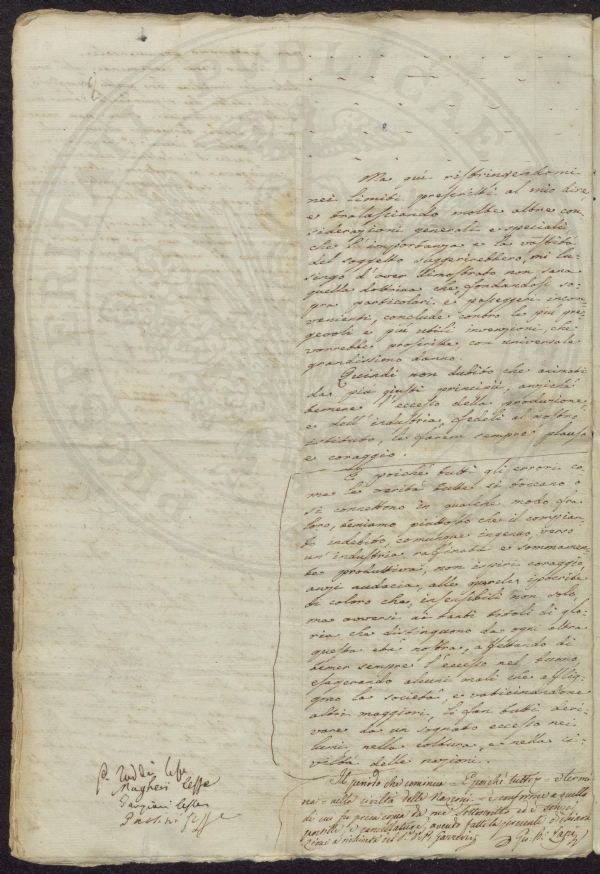 Ma qui restringendomi
nei limiti prescritti al mio dire,
e tralasciando molte altre con
siderazioni generali e speciali
che l'importanza e la vastità
del soggetto suggerirebbero, mi lu-
singo d'aver dimostrato non sana
quella dottrina che, fondandosi so-
pra particolari e passeggeri incon
venienti, conclude contro le più pre
gevoli e più utili invenzioni, che
vorrebbe proscritte con universale
grandissimo danno.
Quindi non dubito che animati
da più giusti principii, anziché
temere l'eccesso della produzione,
e dell'industria, fedeli al nostro
istituto, le farem sempre plauso
e coraggio.
E poiché tutti gli errori co
me le verità tutte si toccano o
si connettono in qualche modo fra
loro, temiamo piuttosto che il compian
to indebito, comunque ingenuo, verso
un'industria raffinata e sommamen
te produttiva, non ispiri coraggio,
anzi audacia, alle querele ipocrite
di coloro che, insensibili non solo,
ma avversi ai tanti titoli di glo
ria che distinguono da ogni altra
questa età nostra, affettando di
temer sempre l'eccesso nel buono,
esagerando alcuni mali che afflig-
gono la società, e vaticinandone
altri maggiori, li fan tutti deri-
vare da un sognato eccesso nei
lumi, nella coltura, e nella ci-
viltà delle nazioni.
Il periodo che comincia - E poiché tutti - e termi
na - nella civiltà delle Nazioni - è conforme a quello
di cui fu
Magheri